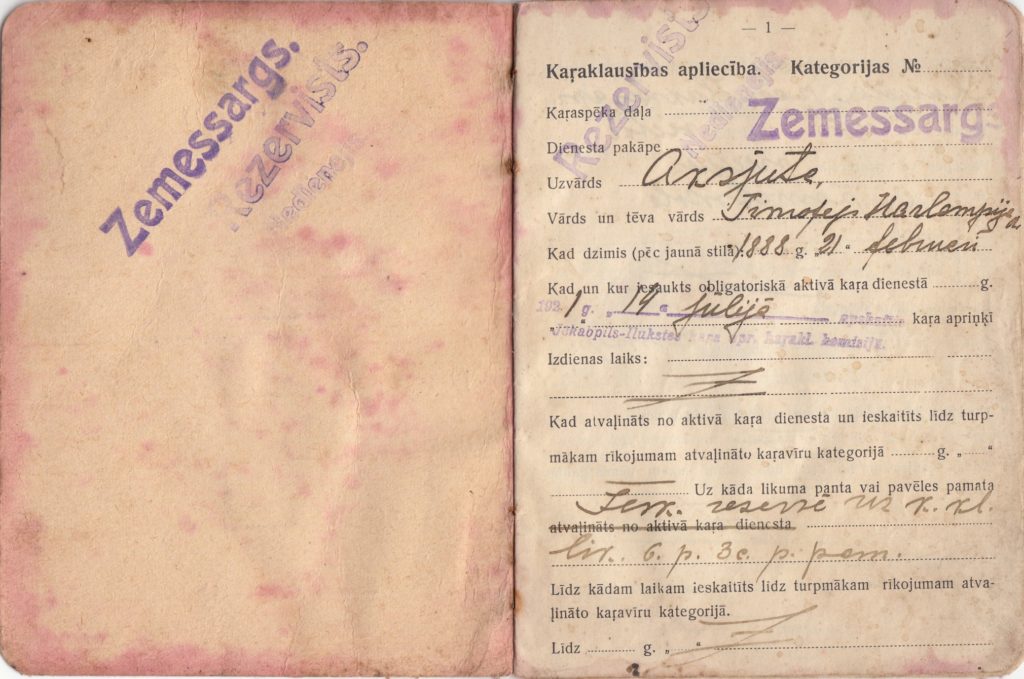 Zemessargs.
Rezervists.
— 1 —
Kaŗaklausības apliecība. Kategorijas №
Kaŗaspēka daļa
Zemessargs
Rezervists
Dienesta pakāpe
Uzvārds Aksjuta,
Vārds un tēva vārds Timofejs Harlampija d.
Kad dzimis (pēc jaunā stila): 1888 g. „21“ februarī
Kad un kur iesaukts obligatoriskā aktīvā kaŗa dienestā g.
192 1 g. „ 14 “ jūlijā apskatīts kaŗa apriņķī
Jēkabpils-Ilūkstes kara apr. karakl. komisijā.
Izdienas laiks:
Kad atvaļināts no aktīvā kaŗa dienesta un ieskaitīts līdz turp-
mākam rīkojumam atvaļināto kaŗavīru kategorijā g. „ “
Uz kāda likuma panta vai pavēles pamata
reservē uz k. kl.
atvaļināts no aktīvā kaŗa dienesta.
lik. 6. p. 3c. p. pam.
Līdz kādam laikam ieskaitīts līdz turpmākam rīkojumam atva-
ļināto kaŗavīru kategorijā.
Līdz g. „ “